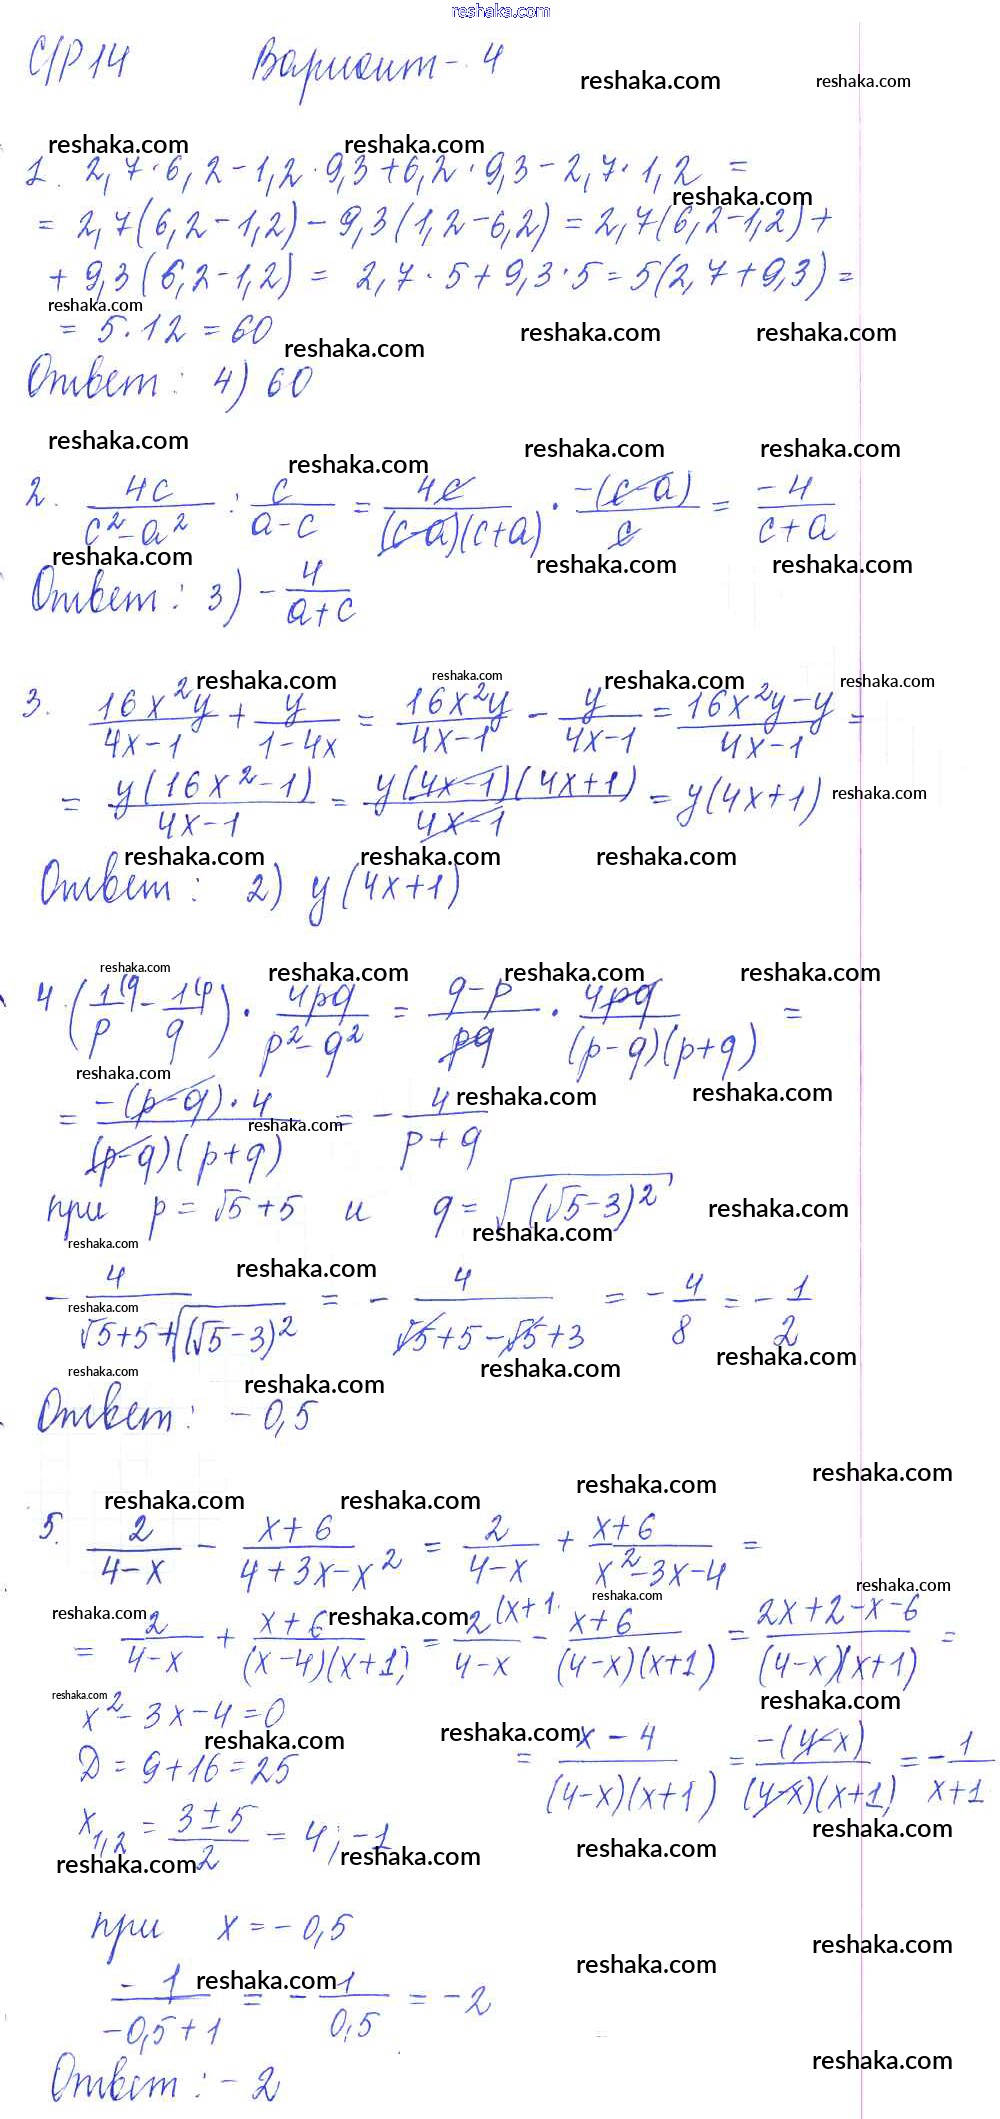 reshaka.com
С/Р 14 Вариант - 4
1. 2,7·6,2 - 1,2·9,3 + 6,2·9,3 - 2,7·1,2 =
= 2,7(6,2 - 1,2) - 9,3(1,2 - 6,2) = 2,7(6,2 - 1,2) +
+ 9,3(6,2 - 1,2) = 2,7·5 + 9,3·5 = 5(2,7 + 9,3) =
= 5·12 = 60
Ответ: 4) 60
2. 4c/(c² - a²) : c/(a - c) = 4c/((c - a)(c + a)) · -(c - a)/c = -4/(c + a)
Ответ: 3) -4/(a + c)
3. 16x²y/(4x - 1) + y/(1 - 4x) = 16x²y/(4x - 1) - y/(4x - 1) = (16x²y - y)/(4x - 1) =
= y(16x² - 1)/(4x - 1) = y(4x - 1)(4x + 1)/(4x - 1) = y(4x + 1)
Ответ: 2) y(4x + 1)
4. (1(q/p - 1(p/q) · 4pq/(p² - q²) = (q - p)/pq · 4pq/((p - q)(p + q)) =
= -(p - q)·4/((p - q)(p + q)) = -4/(p + q)
при p = √5 + 5 и q = √((√5 - 3)²)
-4/(√5 + 5 + √((√5 - 3)²)) = -4/(√5 + 5 - √5 + 3) = -4/8 = -1/2
Ответ: -0,5
5. 2/(4 - x) - (x + 6)/(4 + 3x - x²) = 2/(4 - x) + (x + 6)/(x² - 3x - 4) =
= 2/(4 - x) + (x + 6)/((x - 4)(x + 1)) = 2(x + 1/(4 - x) - (x + 6)/((4 - x)(x + 1)) = (2x + 2 - x - 6)/((4 - x)(x + 1)) =
x² - 3x - 4 = 0
D = 9 + 16 = 25
= (x - 4)/((4 - x)(x + 1)) = -(4 - x)/((4 - x)(x + 1)) = -1/(x + 1)
x₁,₂ = (3 ± 5)/2 = 4; -1
при x = -0,5
-1/(-0,5 + 1) = -1/0,5 = -2
Ответ: -2